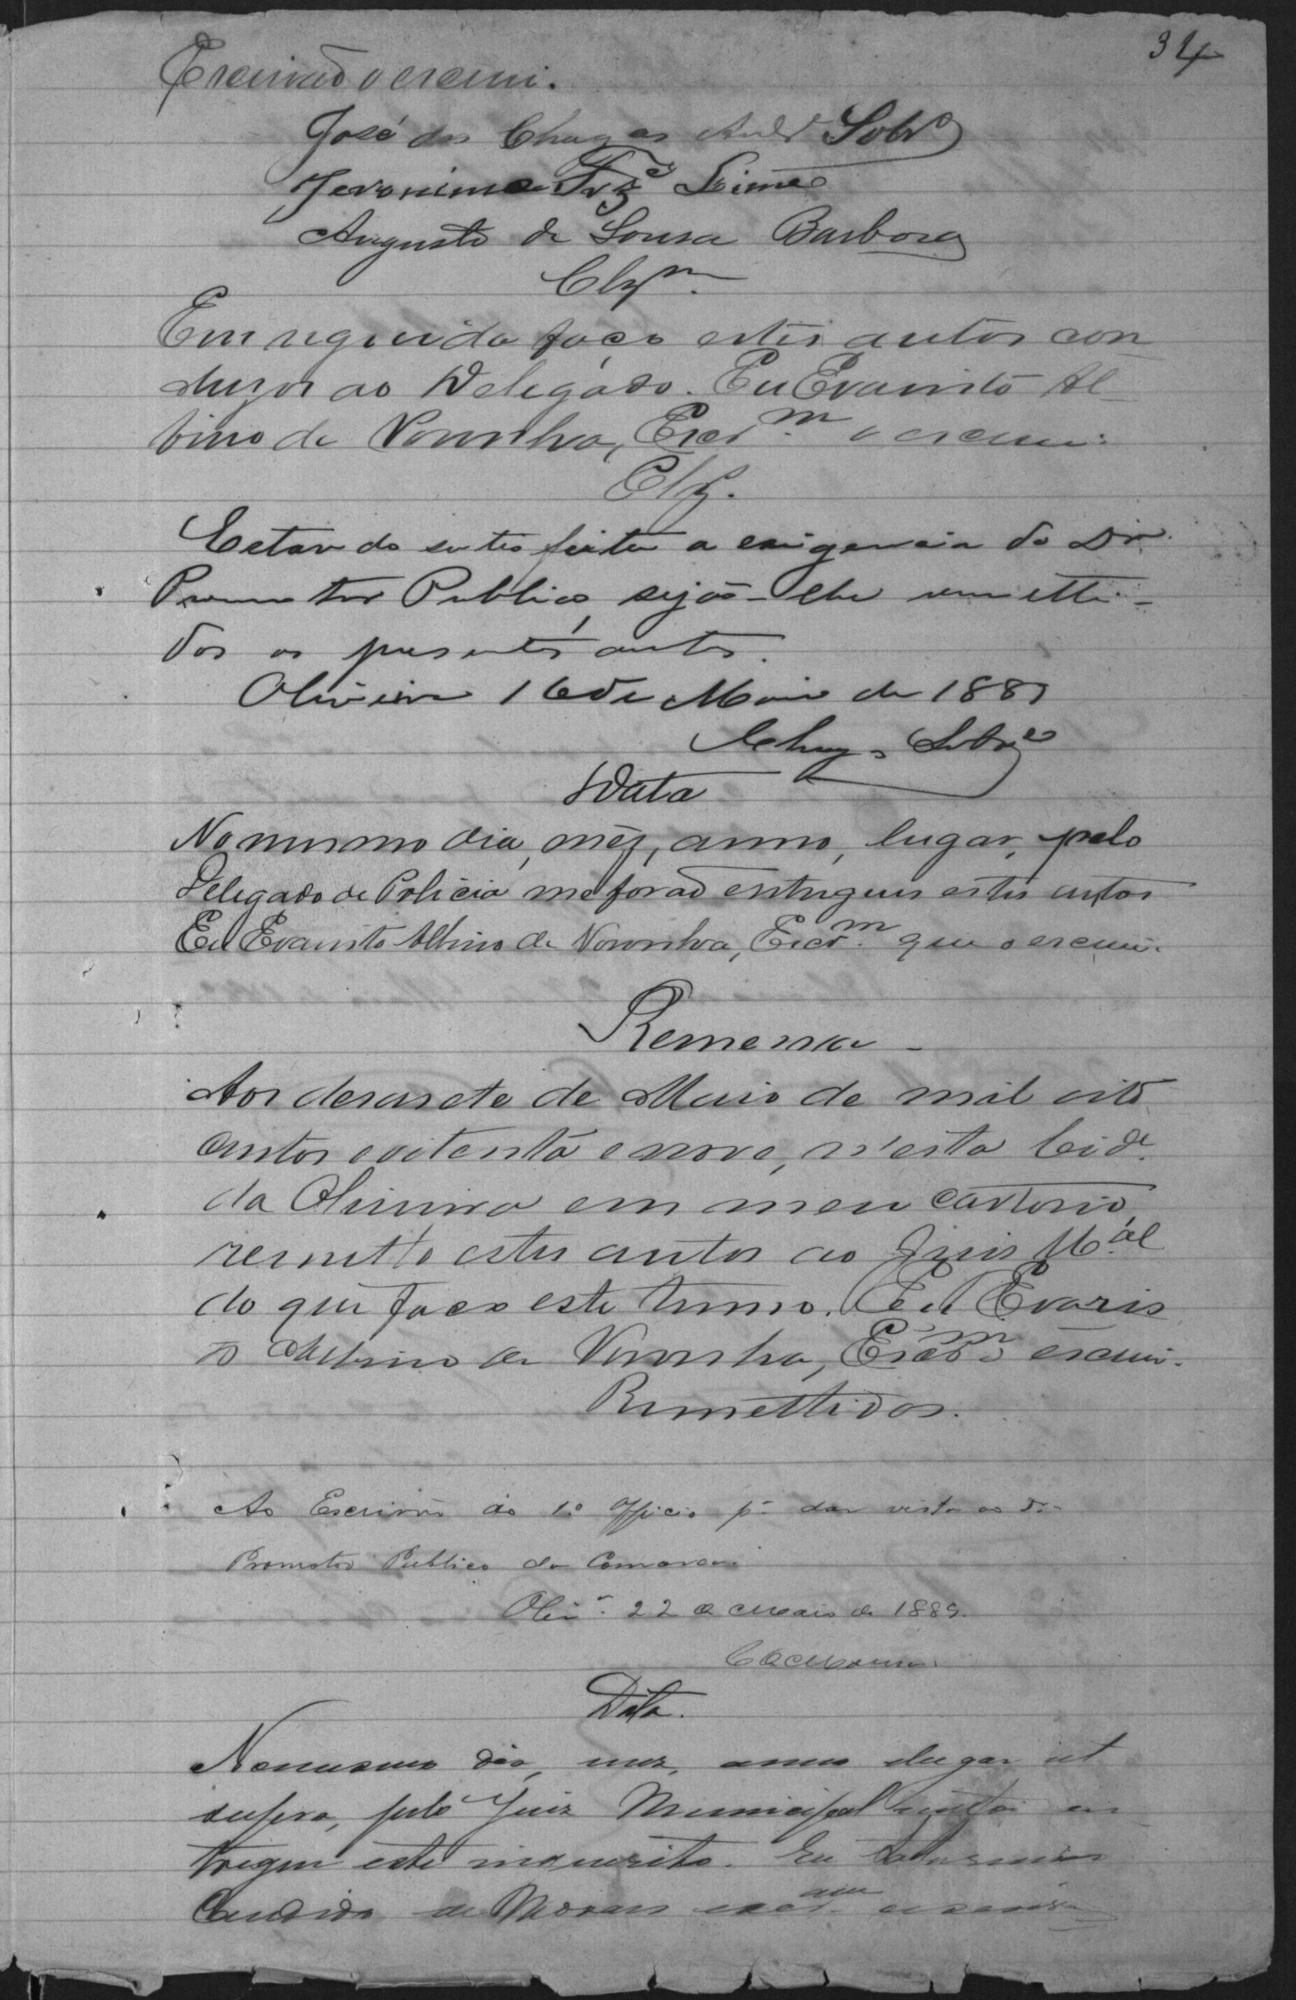 34
Escrivão o escrevi.
José das Chagas Andr.e Sobr.o
Jeronimo Frz Leime
Augusto de Sousa Barbosa
Clz.m
Em seguida faço estes autos con
cluzos ao Delegado. Eu Evaristo Al-
bino de Noronha, Escr.m o escrevi.
Clz.
Estando satisfeita a exigencia do Dr.
Promotor Publico, sejão-lhe remetti-
dos os presentes autos.
Oliveira 16 de Maio de 1889
Chagas Sobr.o
Data
No mesmo dia, mez, anno, lugar, pelo
Delegado de Policia me forão entregues estes autos
Eu Evaristo Albino de Noronha, Escr.m que o escrevi.
Remessa
Aos desasete de Maio de mil oito
centos e oitenta e nove, n'esta Cid.e
da Oliveira em meu cartorio,
remetto estes autos ao Juis M.al
do que faço este termo. Eu Evaris
to Albino de Noronha, Escr.m o escrevi.
Remettidos.
Ao Escrivão do 1.o Officio p.a dar vista ao Dr.
Promotor Publico da Comarca.
Oliv.a 22 de Maio de 1889.
Data.
No mesmo dia, mez, anno e lugar ut
supra, pelo Juiz Municipal me foi en
tregue este inquerito. Eu
Candido de Moraes escr.am o escrevi